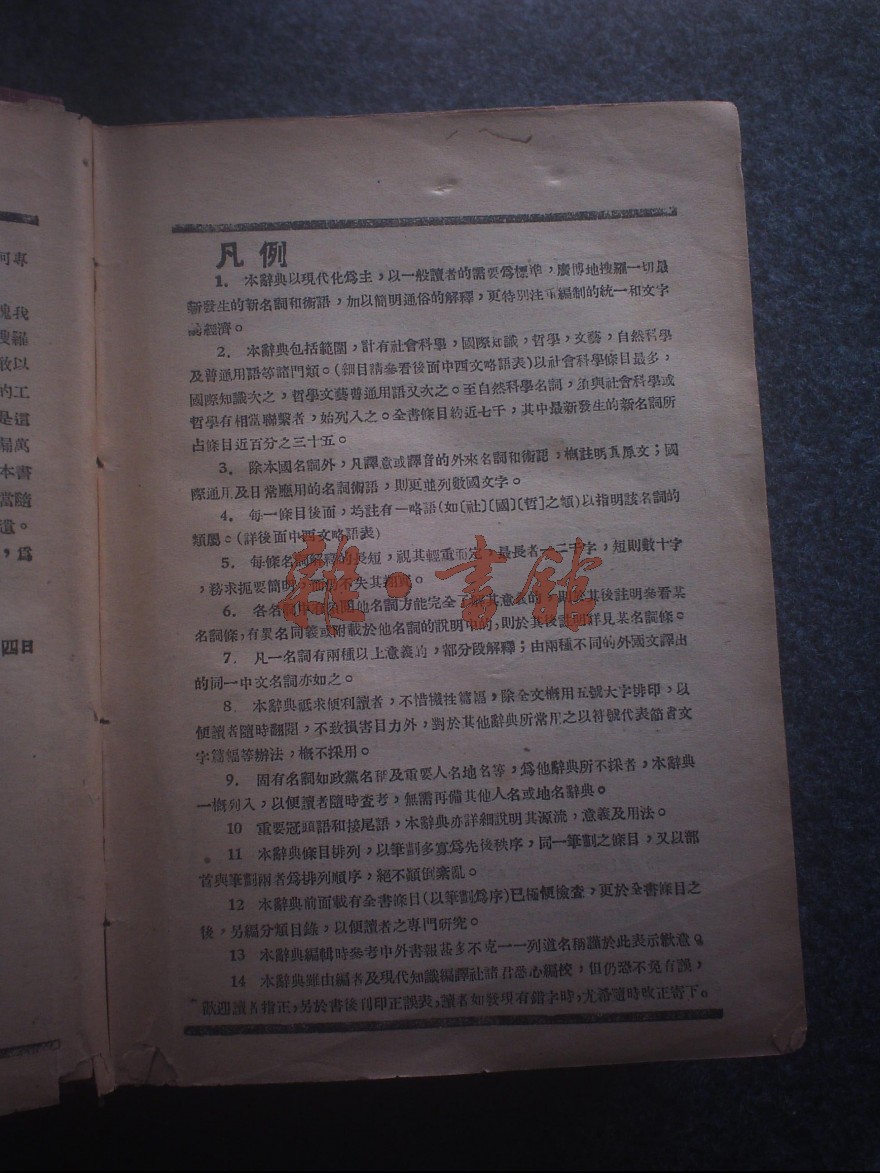 凡例
1. 本辭典以現代化爲主，以一般讀者的需要爲標準，廣博地搜羅一切最
新發生的新名詞和術語，加以簡明通俗的解釋，更特別注重編制的統一和文字
的經濟。
2. 本辭典包括範圍，計有社會科學，國際知識，哲學，文藝，自然科學
及普通用語等諸門類。(細目請參看後面中西文略語表)以社會科學條目最多，
國際知識次之，哲學文藝普通用語又次之。至自然科學名詞，須與社會科學或
哲學有相當聯繫者，始列入之。全書條目約近七千，其中最新發生的新名詞所
占條目近百分之三十五。
3. 除本國名詞外，凡譯意或譯音的外來名詞和術語，概註明其原文；國
際通用及日常應用的名詞術語，則更並列數國文字。
4. 每一條目後面，均註有一略語(如〔社〕〔國〕〔哲〕之類)以指明該名詞的
類屬。(詳後面中西文略語表)
5. 每條名詞解釋的長短，視其輕重而定，最長者一二千字，短則數十字
，務求扼要簡明，而仍不失其
6. 各名詞中有須閱他名詞方能完全了解其意義的，則於其後註明參看某
名詞條，有異名同義或附載於他名詞的說明中的，則於其後註明詳見某名詞條。
7. 凡一名詞有兩種以上意義的，都分段解釋；由兩種不同的外國文譯出
的同一中文名詞亦如之。
8. 本辭典祗求便利讀者，不惜犧牲篇幅，除全文概用五號大字排印，以
便讀者隨時翻閱，不致損害目力外，對於其他辭典所常用之以符號代表節省文
字篇幅等辦法，概不採用。
9. 固有名詞如政黨名稱及重要人名地名等，爲他辭典所不採者，本辭典
一概列入，以便讀者隨時查考，無需再備其他人名或地名辭典。
10 重要冠頭語和接尾語，本辭典亦詳細說明其源流，意義及用法。
11 本辭典條目排列，以筆劃多寡爲先後秩序，同一筆劃之條目，又以部
首與筆劃兩者爲排列順序，絕不顚倒紊亂。
12 本辭典前面載有全書條目(以筆劃爲序)已極便檢查，更於全書條目之
後，另編分類目錄，以便讀者之專門研究。
13 本辭典編輯時參考中外書報甚多不克一一列選名稱謹於此表示歉意。
14 本辭典雖由編者及現代知識編譯社諸君悉心編校，但仍恐不免有誤，
歡迎讀者指正，另於書後刊印正誤表，讀者如發現有錯字時，尤盼隨時改正寄下。
雜·書館
河專
我
搜羅
敢以
的工
是這
萬
本書
當隨
遺。
，爲
四日